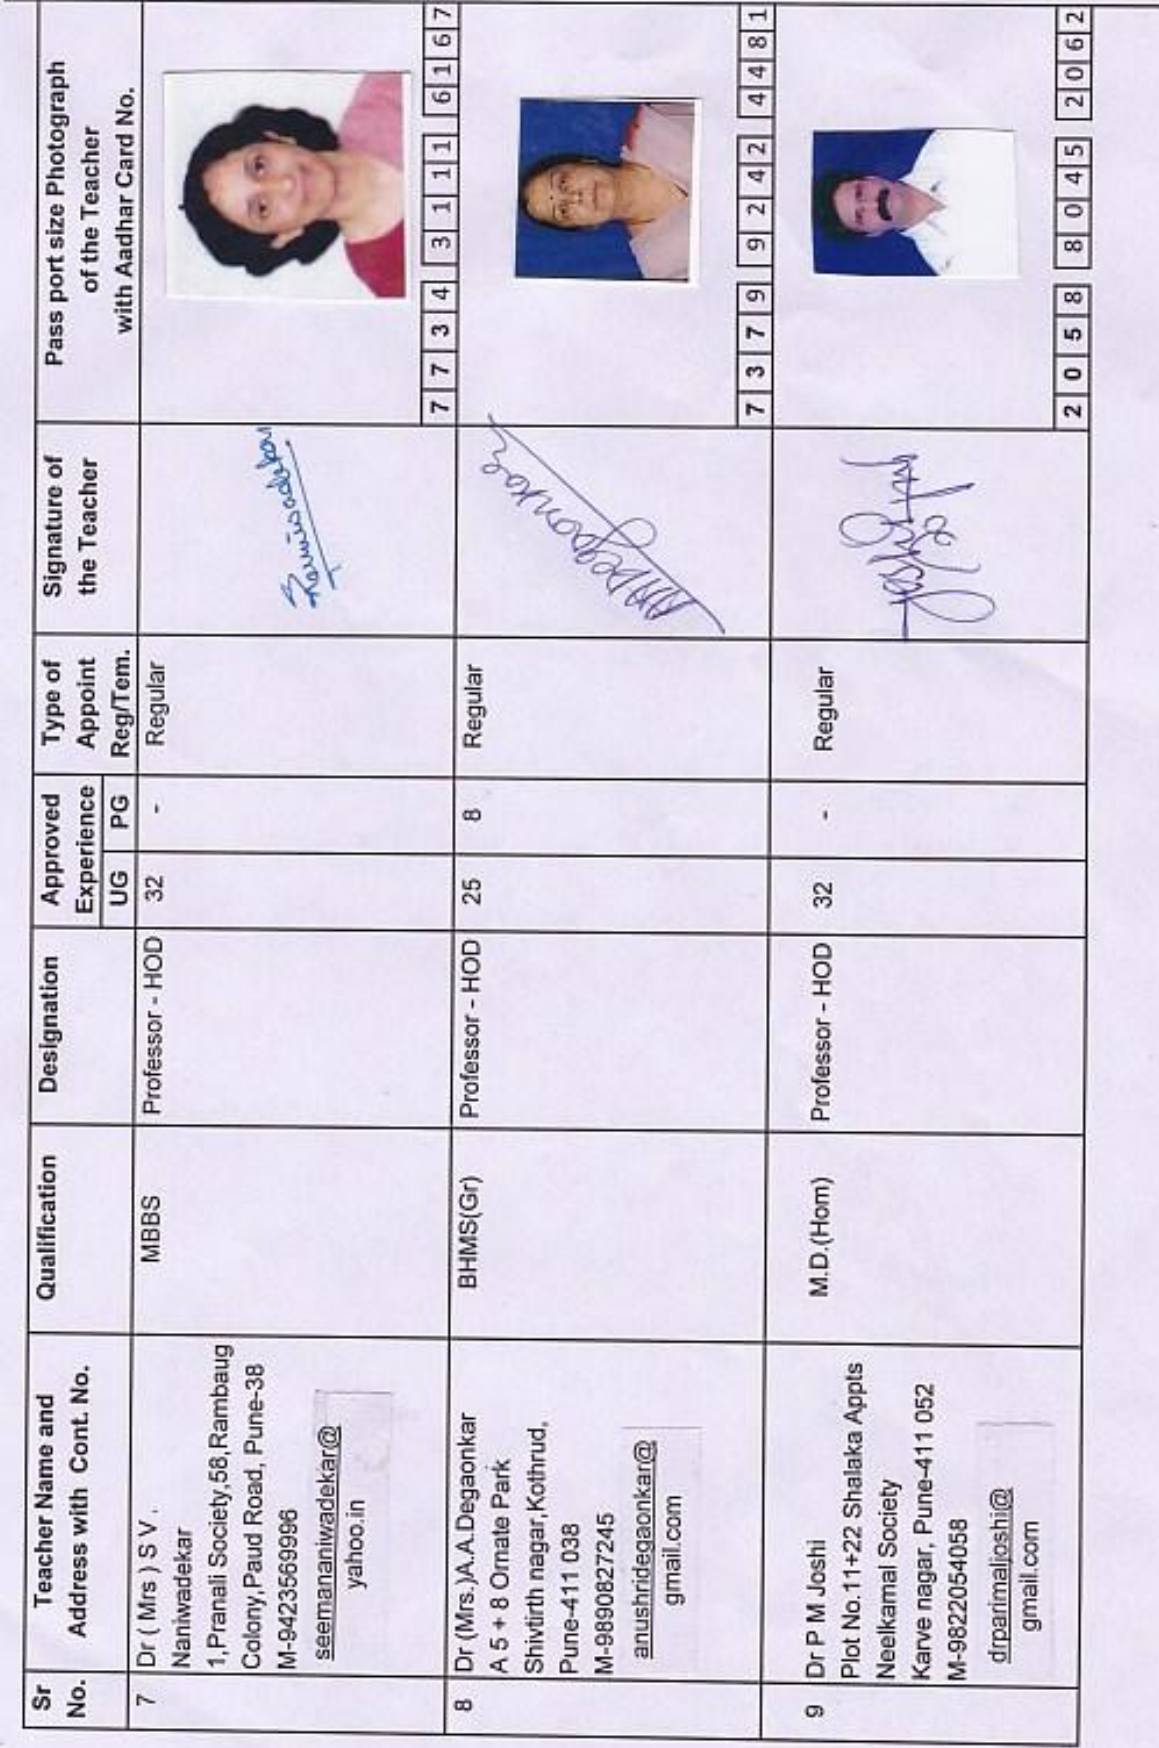 Sr No.
Teacher Name and Address with Cont. No.
Qualification
Designation
Approved Experience
UG PG
Type of Appoint Reg/Tem.
Signature of the Teacher
Pass port size Photograph of the Teacher with Aadhar Card No.
7
Dr ( Mrs ) S V .
Naniwadekar
1,Pranali Society,58,Rambaug
Colony,Paud Road, Pune-38
M-9423569996
seemananiwadekar@
yahoo.in
MBBS
Professor - HOD
32
-
Regular
7 7 3 4 3 1 1 1 6 1 6 7
8
Dr (Mrs.)A.A.Degaonkar
A 5 + 8 Ornate Park
Shivtirth nagar,Kothrud,
Pune-411 038
M-9890827245
anushridegaonkar@
gmail.com
BHMS(Gr)
Professor - HOD
25
8
Regular
7 3 7 9 9 2 4 2 4 4 8 1
9
Dr P M Joshi
Plot No.11+22 Shalaka Appts
Neelkamal Society
Karve nagar, Pune-411 052
M-9822054058
drparimaljoshi@
gmail.com
M.D.(Hom)
Professor - HOD
32
-
Regular
2 0 5 8 8 0 4 5 2 0 6 2